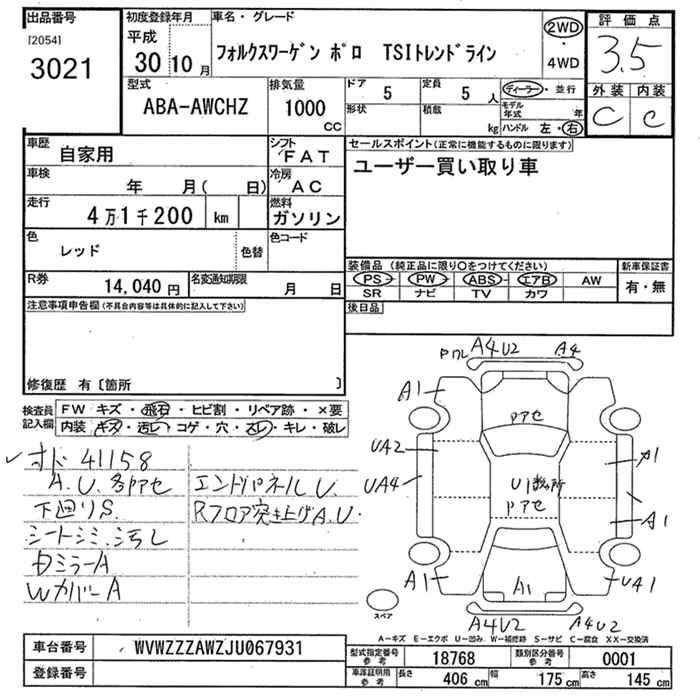 出品番号
[2054]
3021
初度登録年月
平成
30 10 月
車名・グレード
フォルクスワーゲン ポロ TSIトレンドライン
2WD
・
4WD
評価点
3.5
外装 内装
C C
型式
ABA-AWCHZ
排気量
1000
CC
ドア
5
定員
5 人
形状
積載
kg
ディーラー・並行
モデル
年式 年
ハンドル 左・右
車歴
自家用
シフト
FAT
車検
年 月( 日)
冷房
AC
走行
4万1千200 km
燃料
ガソリン
色
レッド
色替
色コード
R券
14,040 円
名変通知期限
月 日
セールスポイント(正常に機能するものに限ります)
ユーザー買い取り車
装備品 (純正品に限り○をつけてください)
PS PW ABS エアB AW
SR ナビ TV カワ
新車保証書
有・無
後日品
注意事項申告欄(不具合内容等は具体的に記入して下さい)
修復歴 有〔箇所 〕
検査員
記入欄
FW キズ・飛石・ヒビ割・リペア跡・×要
内装 キズ・汚レ・コゲ・穴・スレ・キレ・破レ
✓オド 41158
A.U.多アセ
下廻りS.
シートシミ、汚レ
Dミラー A
Wカバー A
エンドパネルU.
Rフロア突き上げA.U.
A4U2
A4
A1
Pアセ
UA2
UA4
A1
U1数ヶ所
Pアセ
A1
A1
A1
UA1
A4U2
A4U2
スペア
A-キズ E-エクボ U-凹み W-補修跡 S-サビ C-腐食 XX-交換済
車台番号
WVWZZZAWZJU067931
登録番号
型式指定番号
参考
18768
類別区分番号
参考
0001
車庫証明用
参考
長さ 406 cm
幅 175 cm
高さ 145 cm